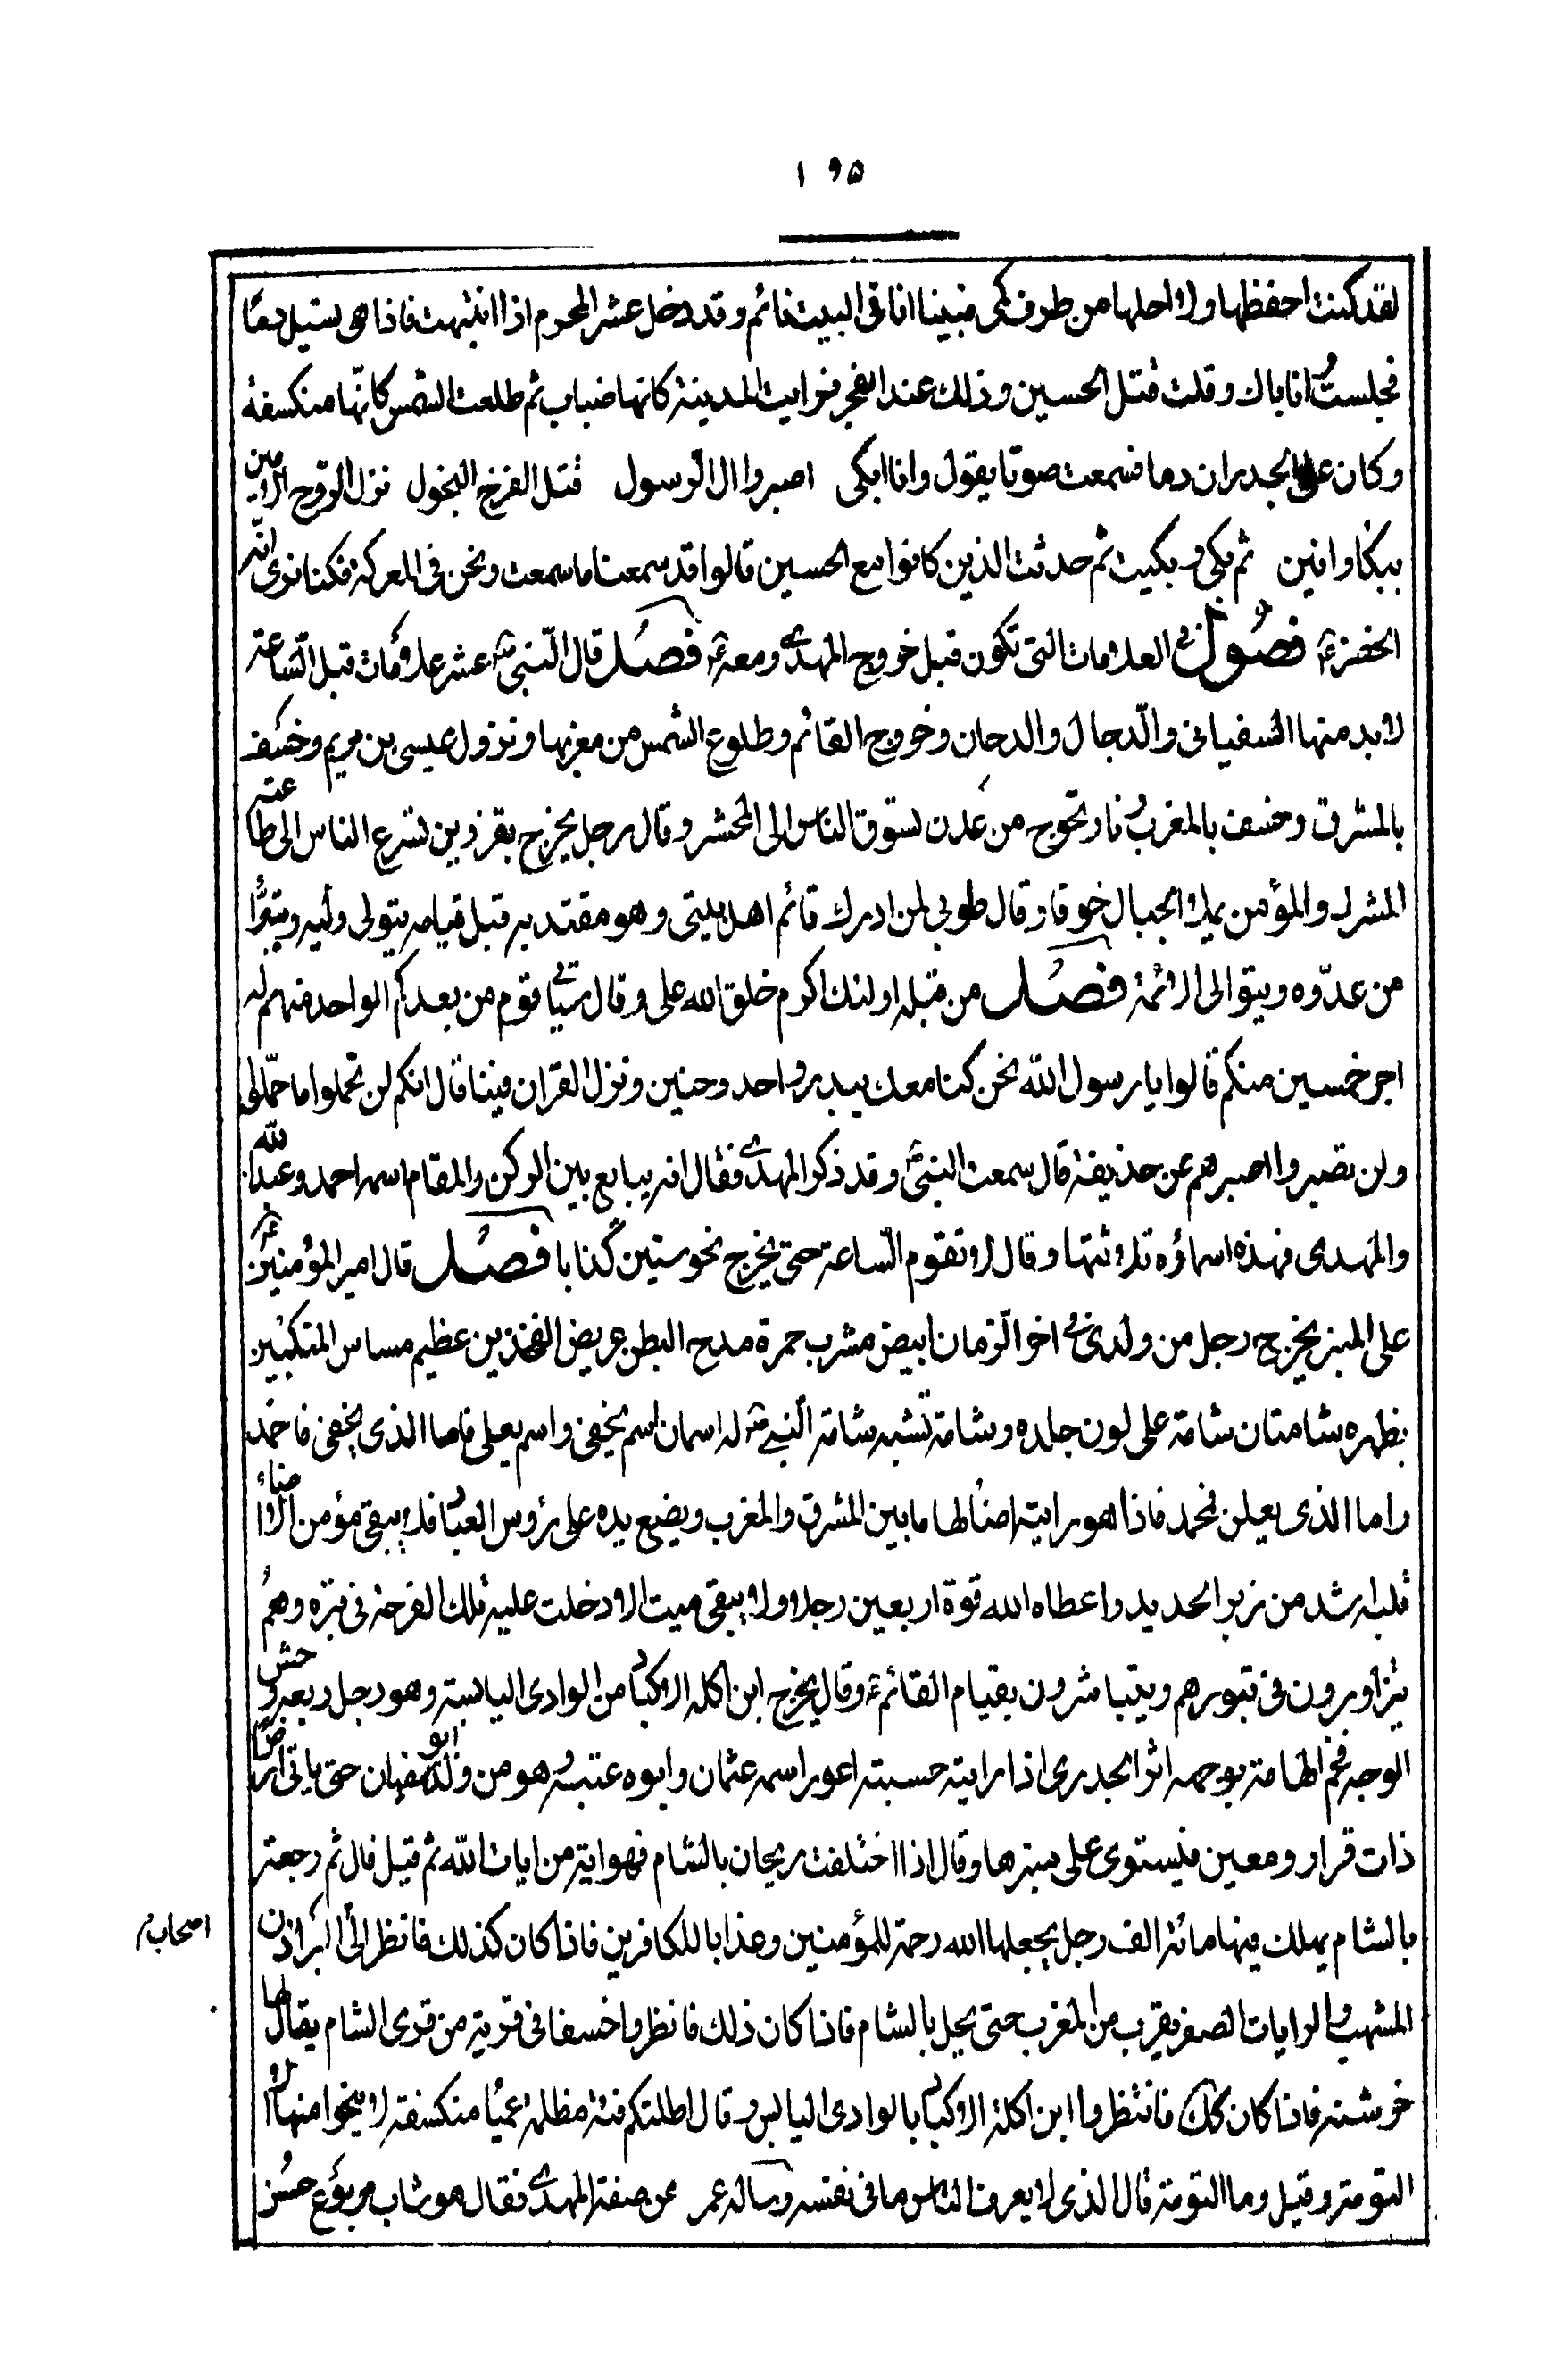 ١٩٥
لقد كنت احفظها ولا احلها من طرف كمى فبينا انا فى البيت نائم وقد دخل عشر المحرم اذا انتبهت فاذا هى يسيل دمًا
فجلستُ انا باك وقلت قتل الحسين وذلك عند الفجر فرايت المدينة كانها ضباب ثم طلعت الشمس كانّها منكسفة
وكان على الجدران دما فسمعت صوتا يقول وانا ابكى اصبروا ال الرّسول قتل الفرخ النحول نزل الرّوح الامين
ببكاء وانين ثم بكى وبكيت ثم حدثت الذين كانوا مع الحسين قالوا قد سمعنا ما سمعت ونحن فى المعركة فكنا نرى انّه
الخضر ع فصُول فى العلامات التى تكون قبل خروج المهدى ومعه ع فصل قال النّبى ص عشر علامات قبل السّاعة
لابد منها السفيانى والدّجال والدخان وخروج القائم وطلوع الشمس من مغربها ونزول عيسى بن مريم وخسف
بالمشرق وخسف بالمغرب ونار تخرج من عدن تسوق الناس الى المحشر وقال رجل يخرج بقزوين تسرع الناس الى طاعته
المشرك والمؤمن يملا الجبال خوفا وقال طوبى لمن ادرك قائم اهل بيتى وهو مقتد به قبل قيامه يتولى وليه ويتبرّأ
من عدّوه ويتوالى الائمة فصل من قبله اولئك اكرم خلق الله على وقال سياتى قوم من بعدكم الواحد منهم له
اجر خمسين منكم قالوا يا رسول الله نحن كنا معك ببدر واحد وحنين ونزل القران فينا قال انكم لن تحملوا ما حمّلوا
ولن تصبروا صبرهم عن حذيفة قال سمعت النبىّ ص وقد ذكر المهدى فقال انه يبايع بين الركن والمقام اسمه احمد وعبد الله
والمهدى فهذه اسماؤه ثلاثتها وقال لا تقوم السّاعة حتى يخرج نحو ستين كذابا فصل قال امير المؤمنين ع
على المنبر يخرج رجل من ولدى فى اخر الزمان ابيض مشرب حمرة مدح البطن عريض الفخذين عظيم مساس المنكبين
بظهره شامتان شامة على لون جلده وشامة تشبه شامة النّبى ص له اسمان اسم يخفى واسم يعلن فاما الذى يخفى فاحمد
واما الذى يعلن فمحمد فاذا هو رايته اضاء لها ما بين المشرق والمغرب ويضع يده على رؤس العباد فلا يبقى مؤمن الا اضاء
قلبه اشد من زبر الحديد واعطاه الله قوة اربعين رجلا ولا يبقى ميت الا دخلت عليه تلك الفرحة فى قبره وهمُ
يتزاورون فى قبورهم ويتباشرون بقيام القائم ع وقال يخرج ابن اكلة الاكباد من الوادى اليابسة وهو رجل ربعة وحش
الوجه فخم الهامة بوجهه اثر الجدرى اذا رايته حسبته اعور اسمه عثمان وابوه عتبة وهو من ولد ابو سفيان حتى ياتى ارضا
ذات قرار ومعين فيستوى على منبرها وقال اذا اختلفت ريحان بالشام فهو اية من ايات الله ثم قيل قال ثم رجعة
بالشام يهلك فيها مائة الف رجل يجعلها الله رحمة للمؤمنين وعذابا للكافرين فاذا كان كذلك فانظر الى البراذن
اصحاب
المشهب والرايات الصفر يقرب من المغرب حتى يحل بالشام فاذا كان ذلك فانظروا خسفا فى قرية من قرى الشام يقال لها
خرشنة فاذا كان كك فانتظروا ابن اكلة الاكباد بالوادى اليابس وقال اطلتكم فتنة مظلمة عميا منكسفة لا ينجوا منها الا
النومة وقيل وما النومة قال الذى لا يعرف الناس ما فى نفسه وساله عمر عن صفة المهدى فقال هو شاب مربوع حسن